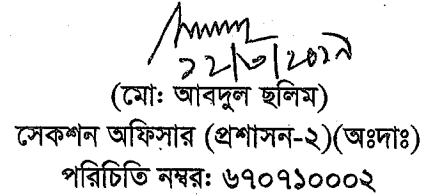 ১২/৩/২০১৯
(মো: আবদুল ছলিম)
সেকশন অফিসার (প্রশাসন-২)(অ:দা:)
পরিচিতি নম্বর: ৬৭০৭১০০০২